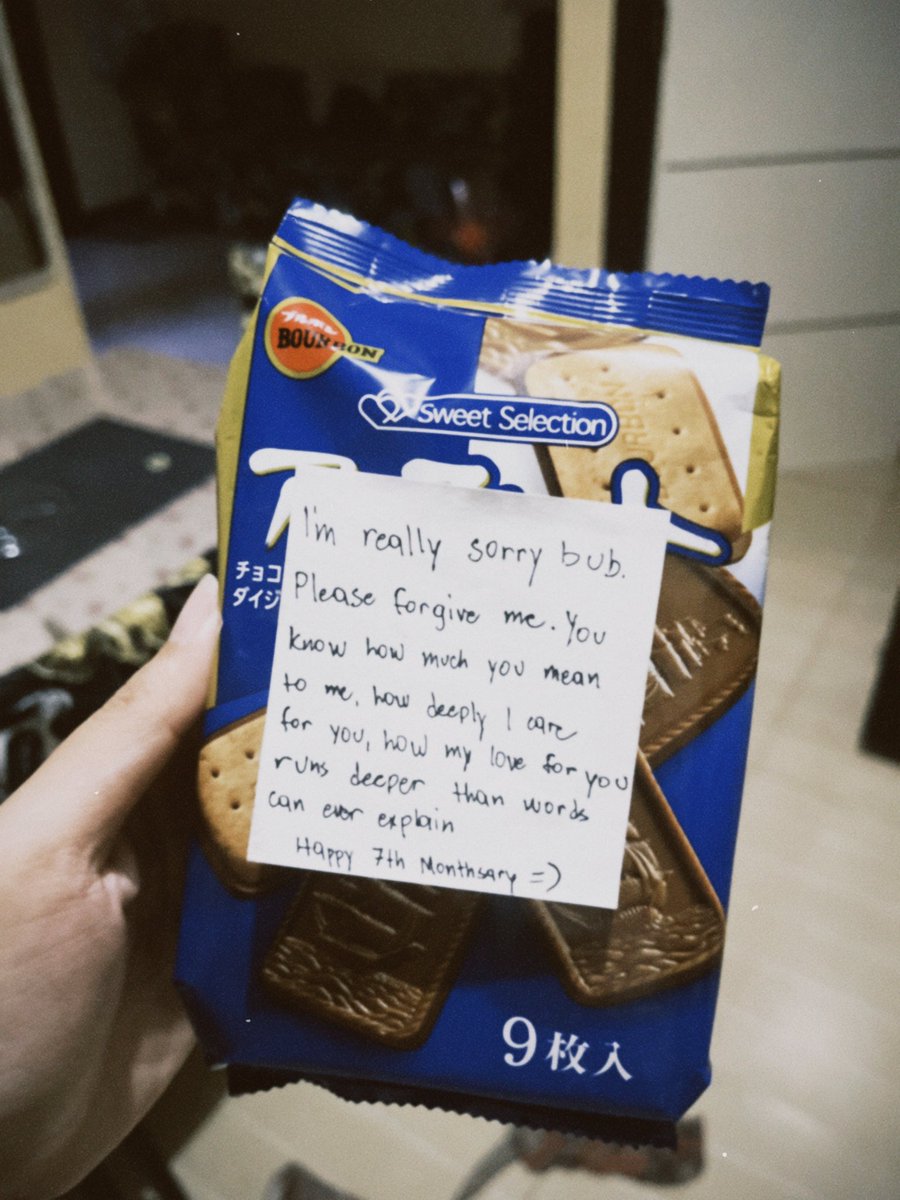 ブルボン
BOURBON
Sweet Selection
チョコ
ダイジ
I'm really sorry bub.
Please forgive me. You
know how much you mean
to me, how deeply I care
for you, how my love for you
runs deeper than words
can ever explain
Happy 7th Monthsary =)
9枚入